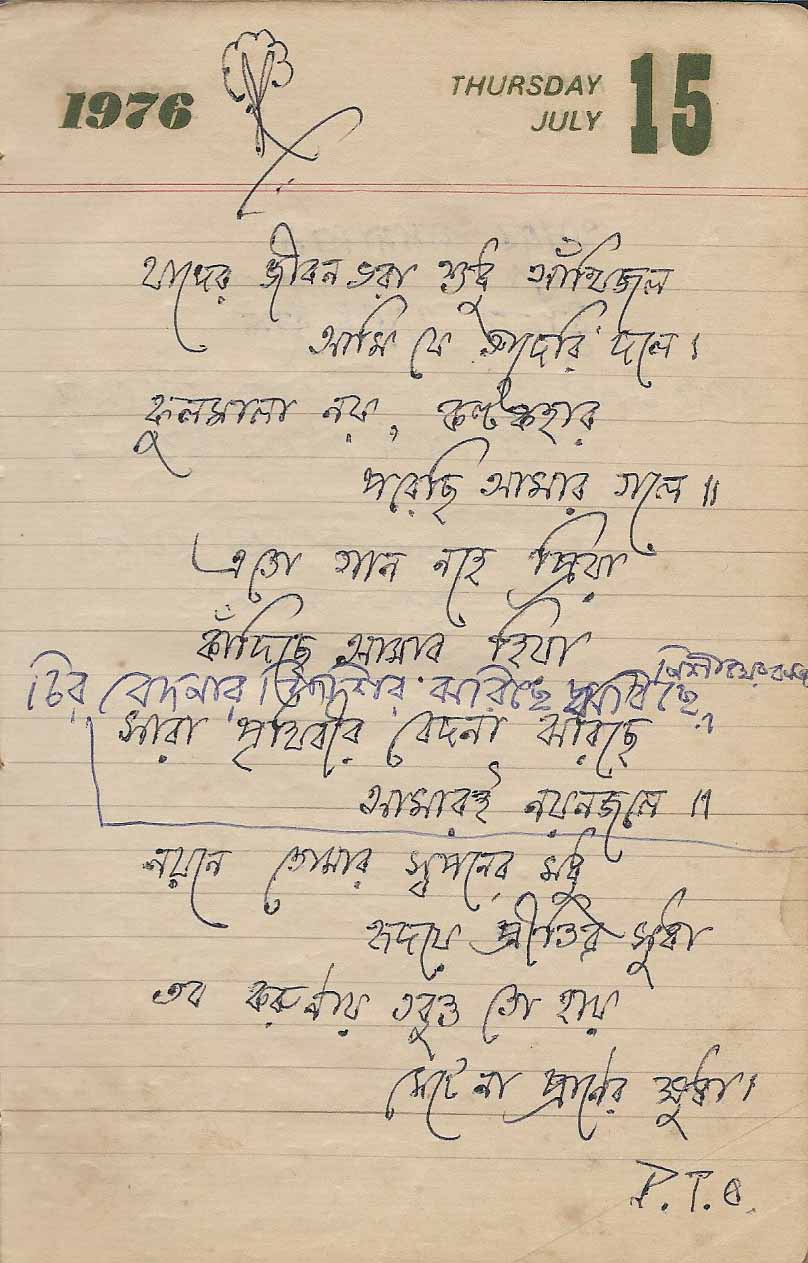 1976
THURSDAY
JULY
15
যাদের জীবন ভরা শুধু আঁখিজল
আমি যে তাদেরি দলে।
ফুলমালা নয়, কন্টকহার
পরেছি আমার গলে॥
এতো গান নহে প্রিয়া
কাঁদিছে আমার হিয়া
চির বেদনার ঝরিছে
সারা পৃথিবীর বেদনা ঝরিছে
আমারই নয়নজলে॥
নয়নে তোমার স্বপনের মধু
হৃদয়ে প্রীতির সুধা
তব করুণায় তবুও তো হায়
মেটেনা প্রাণের ক্ষুধা।
P.T.O.